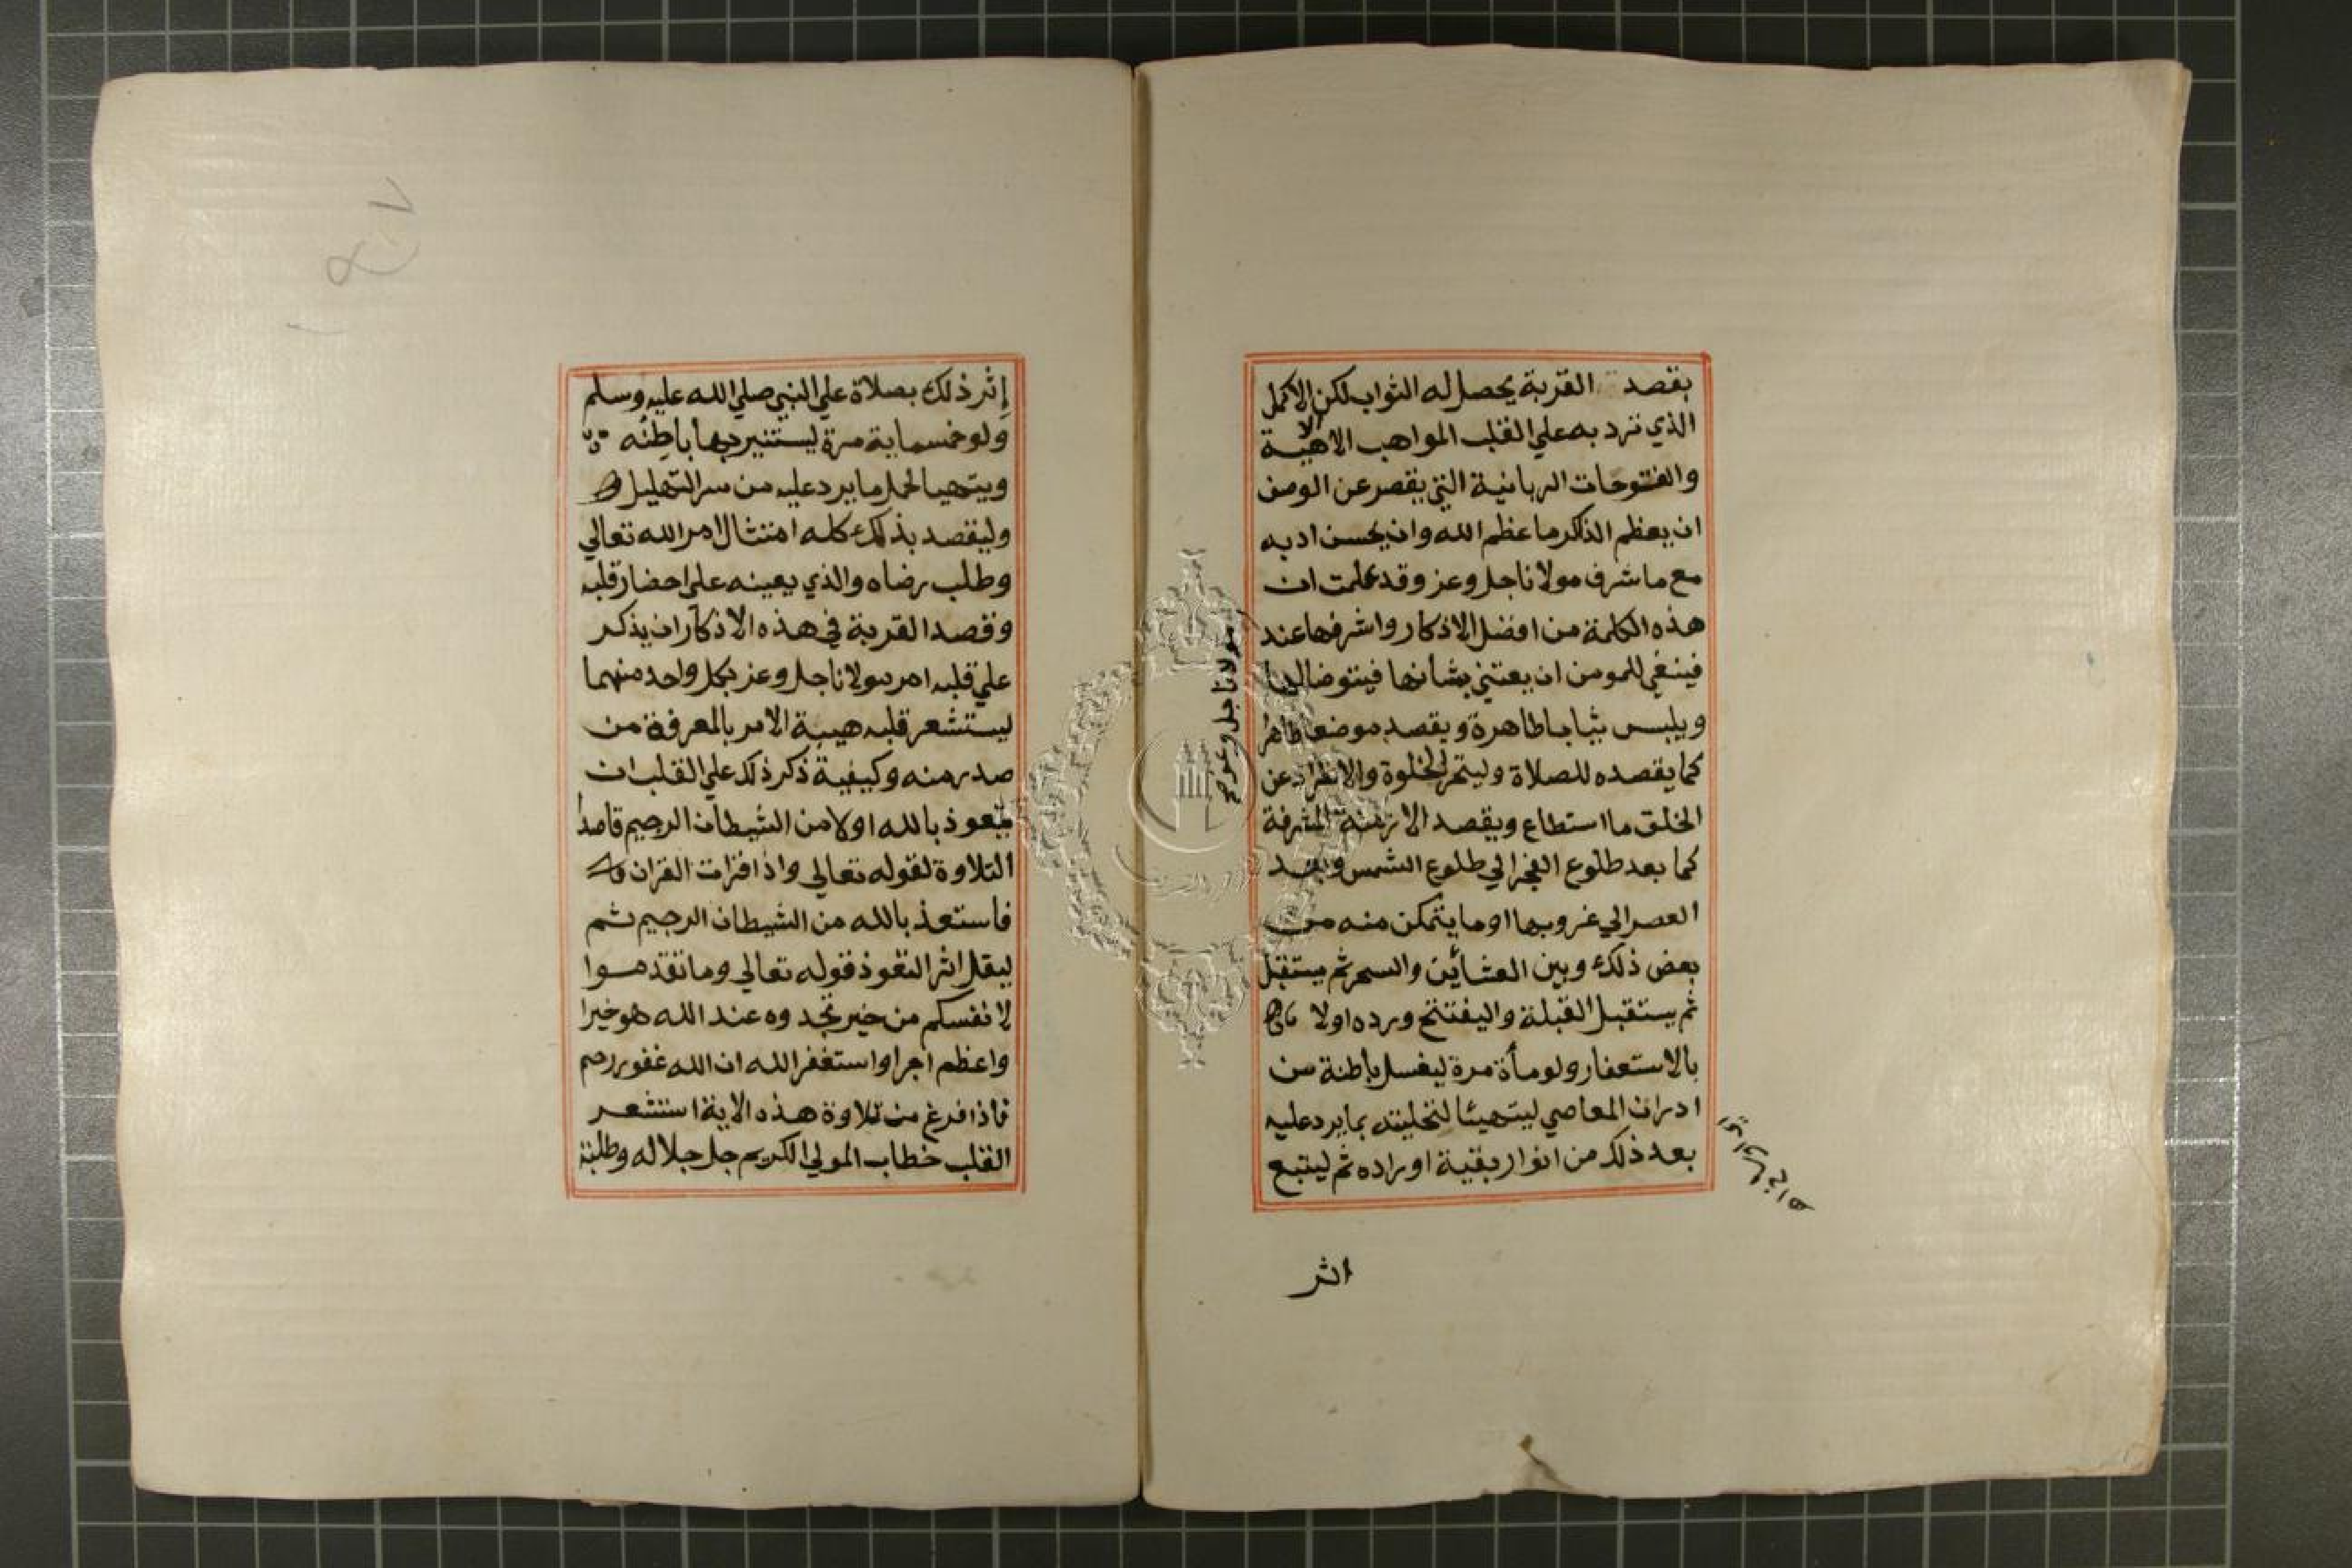 بقصد القربة يحصل له الثواب لكن الاكمل
الذي ترد به علي القلب المواهب الالاهية
والفتوحات الربانية التي يقصر عن الوصف
ان يعظم الذاكر ما عظم الله وان يحسن ادبه
مع ما شرف مولانا جل وعز وقد علمت ان
هذه الكلمة من افضل الاذكار واشرفها عند
مولانا جل وعز
فينبغي للمومن ان يعتني بشانها فيتوضا لها
ويلبس ثيابا طاهرة ويقصد موضعا طاهرا
كما يقصده للصلاة وليتحر الخلوة والانفراد عن
الخلق ما استطاع ويقصد الازمنة المشرفة
كما بعد طلوع الفجر الي طلوع الشمس وبعد
العصر الي غروبها او ما يتمكن منه من
بعض ذلك وبين العشائين والسحر ثم يستقبل
ثم يستقبل القبلة واليفتتح ورده اولا
بالاستغفار ولو مأة مرة ليغسل باطنة من
ادران المعاصي ليتهيئا لتحليته بما يرد عليه
بعد ذلك من انوار بقية اوراده ثم ليتبع
اثر
إثر ذلك بصلاة علي النبي صلي الله عليه وسلم
ولو خمسماية مرة ليستنير بها باطنه
ويتهيا لحمل ما يرد عليه من سر التهليل
وليقصد بذلك كله امتثال امر الله تعالي
وطلب رضاه والذي يعينه علي احضار قلبه
وقصد القربة في هذه الاذكار ان يذكر
علي قلبه امر مولانا جل وعز بكل واحد منهما
ليستشعر قلبه هيبة الامر بالمعرفة من
صدر منه وكيفية ذكر ذلك علي القلب ان
يتعوذ بالله اولا من الشيطان الرجيم قاصدا
التلاوة لقوله تعالي واذا قرات القران
فاستعذ بالله من الشيطان الرجيم ثم
ليقل اثر التعوذ قوله تعالي وما تقدموا
لانفسكم من خير تجدوه عند الله هو خيرا
واعظم اجرا واستغفر الله ان الله غفور رحم
فاذا فرغ من تلاوة هذه الاية استشعر
القلب خطاب المولي الكريم جل جلاله وطلبته